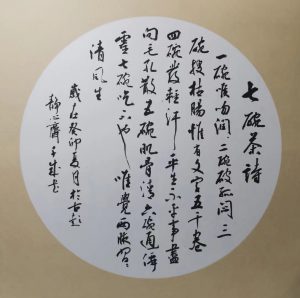 七碗茶詩
一碗喉吻润二碗破孤闷三
碗搜枯腸惟有文字五千卷
四碗发轻汗平生不平事盡
向毛孔散五碗肌骨清六碗通仙
靈七碗吃不也唯觉两腋習習
清风生
歲在癸卯夏月於古彭
静心齋